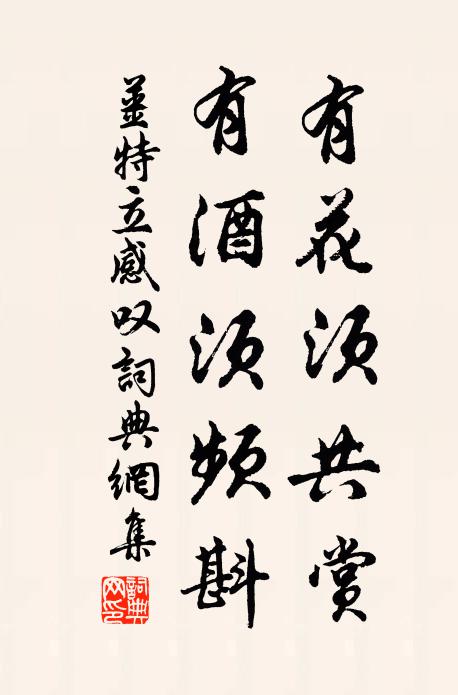 有花须共赏
有酒须频斟
姜特立感叹詞典網集
詞典网印